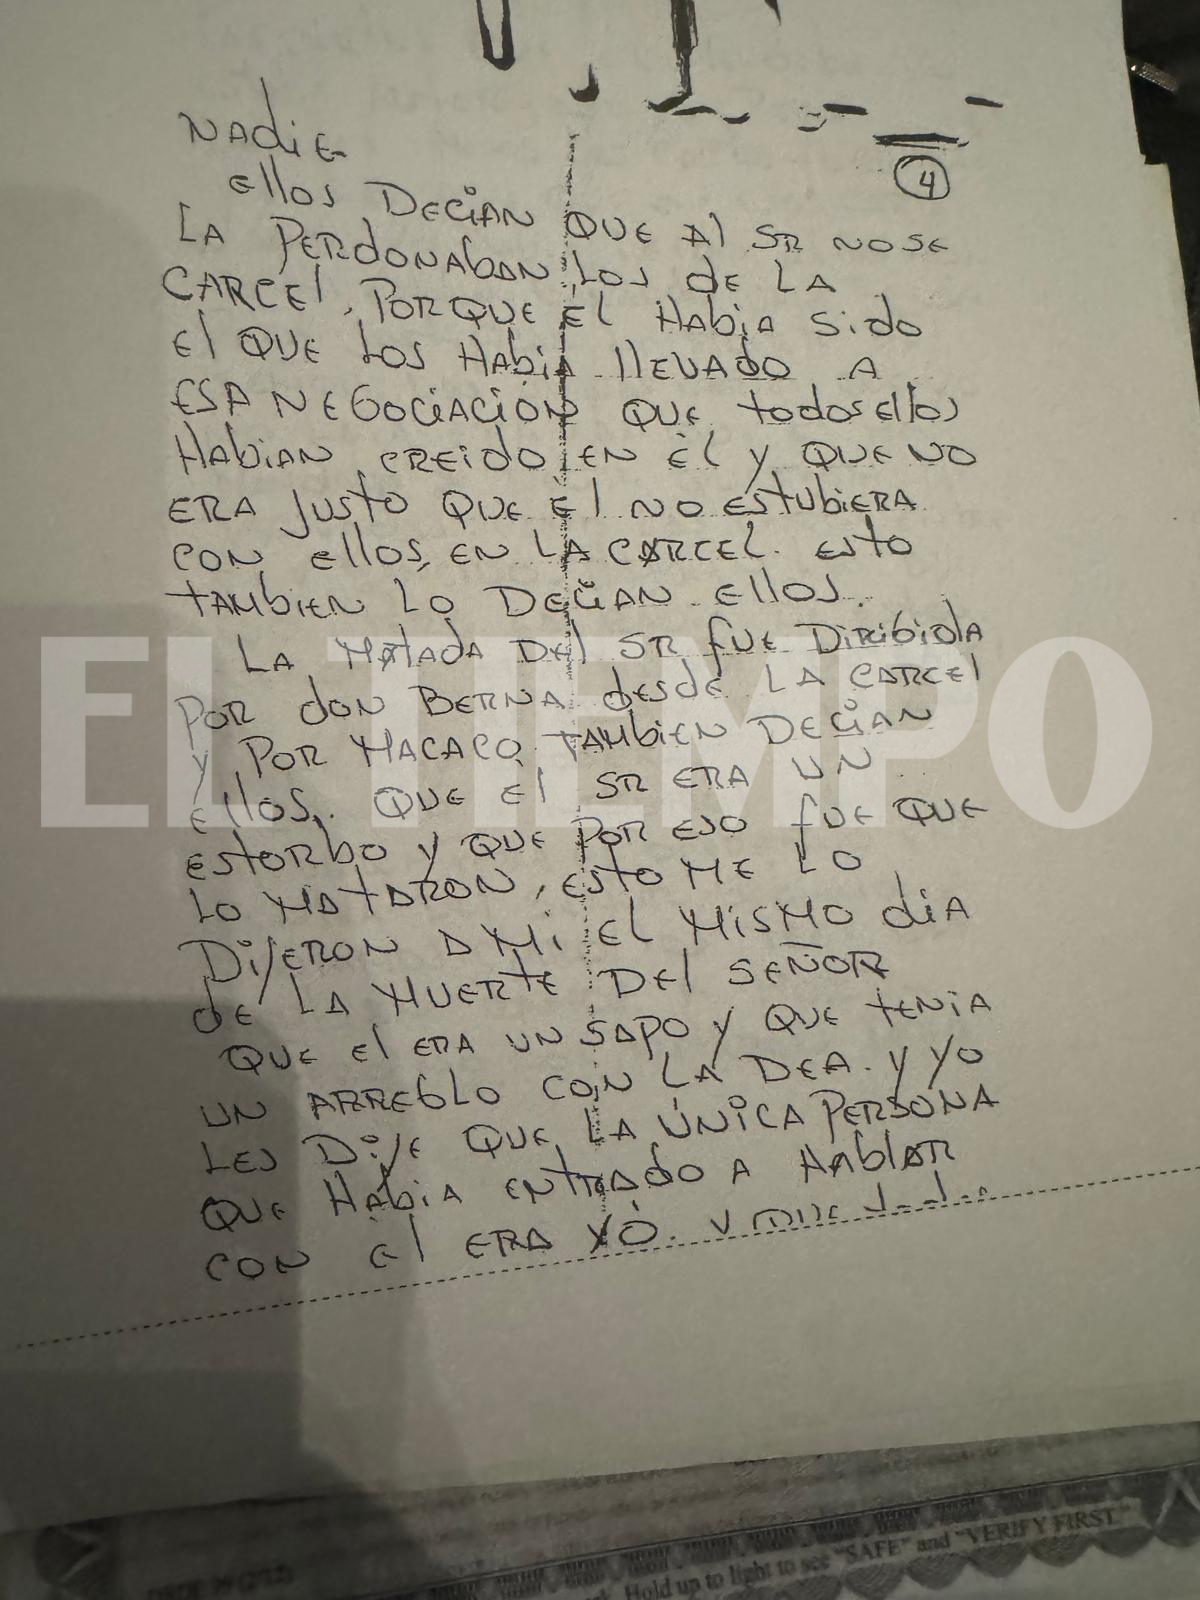 4
NADIE
Ellos DECIAN QUE Al SR NO SE
LA PERDONABAN LOS de LA
CARCEl, PORQUE ÉL HABIA Sido
El QUE LOS HABIA llEVADO A
ESA NEGOCIACION QUE todos Ellos
HABIAN CREIDO EN ÉL y QUE NO
ERA JUSTO QUE El NO ESTUBIERA
CON Ellos, EN LA CARCEL. ESTO
TAMBIEN LO DECIAN Ellos.
LA MATADA DEl SR fUE DIRIGIDA
POR dON BERNA dESdE LA CARCEl
y POR MACACO TAMBIEN DECIAN
Ellos. QUE El SR ERA UN
ESTORBO y QUE POR ESO fUE QUE
LO MATARON, ESTO ME LO
DIJERON A Mi EL MISMO diA
dE LA MUERTE DEl SEÑOR
QUE El ERA UN SAPO y QUE TENIA
UN ARREGLO CON LA DEA. y yO
LES DIJE QUE LA ÚNICA PERSONA
QUE HABIA ENTRADO A HABLAR
CON El ERA YO. y QUE
EL TIEMPO
Hold up to light to see "SAFE" and "VERIFY FIRST."